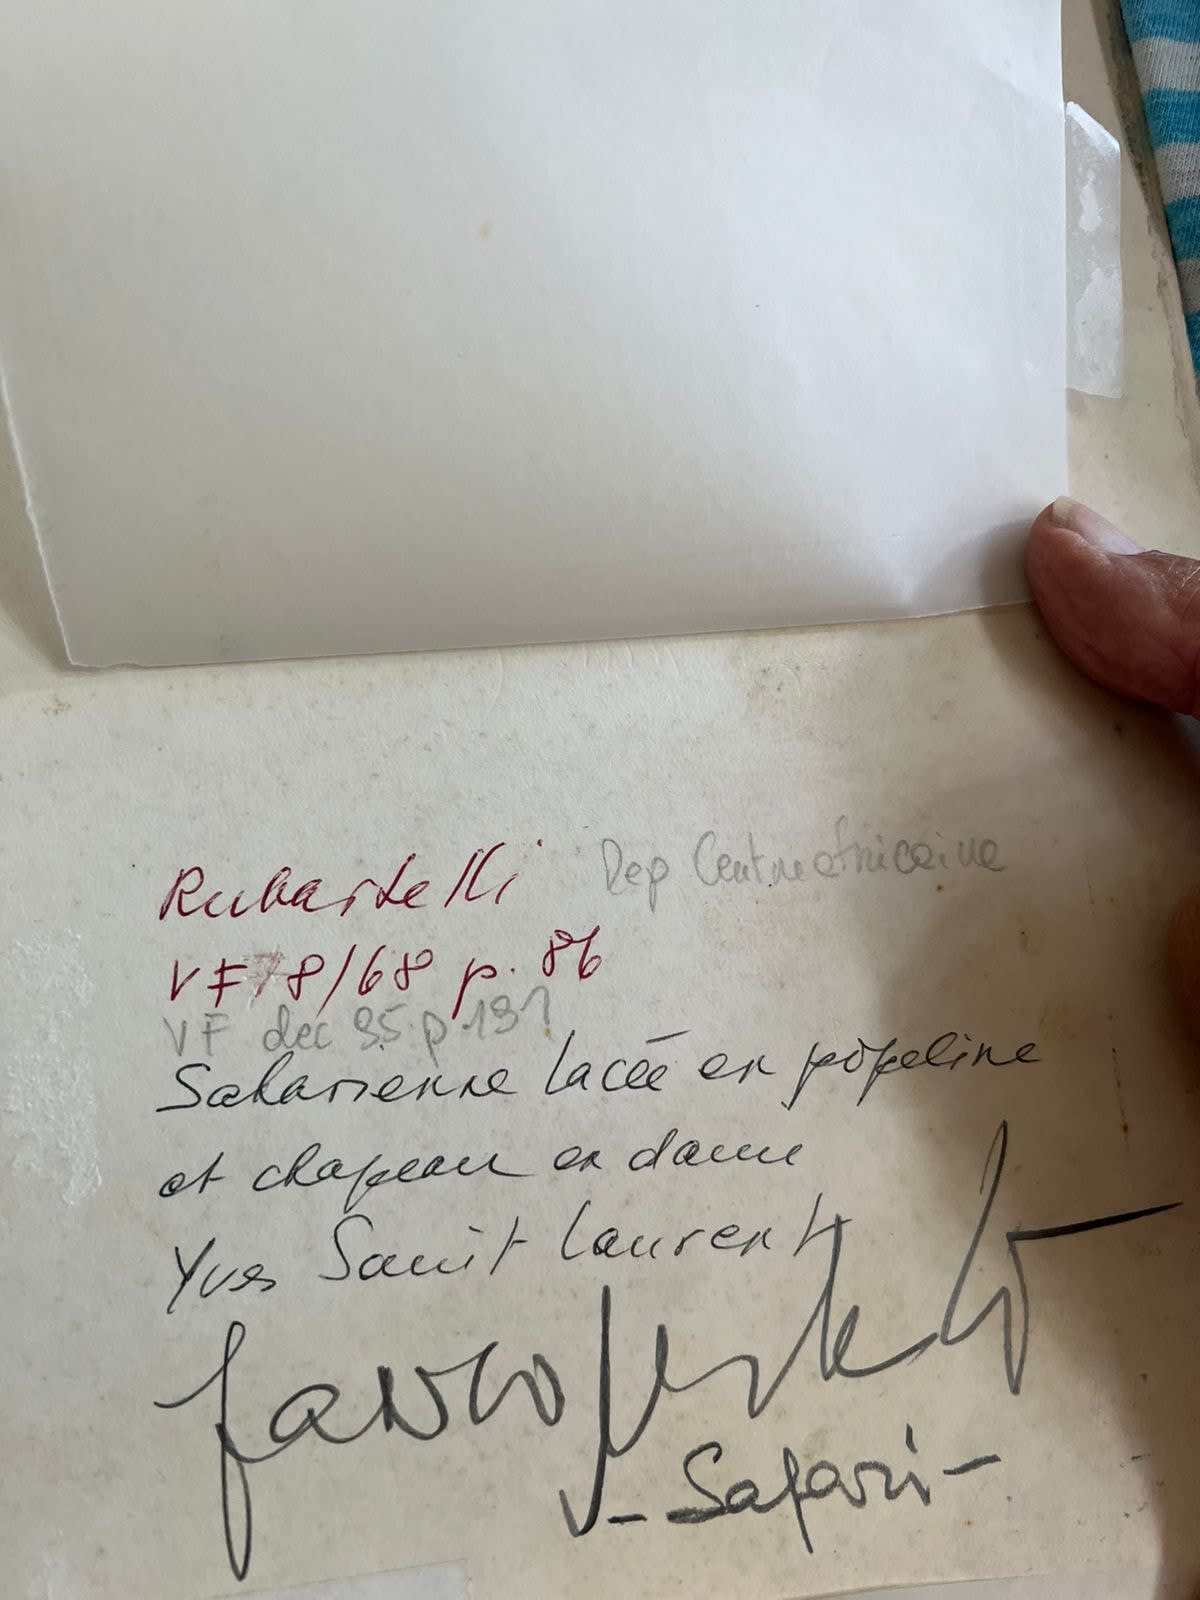 Rubartelli Rep Centrafricaine
VF 8/68 p. 86
VF dec 95 p.191
Saharienne lacée en popeline
et chapeau en daim
Yves Saint Laurent
- Safari -